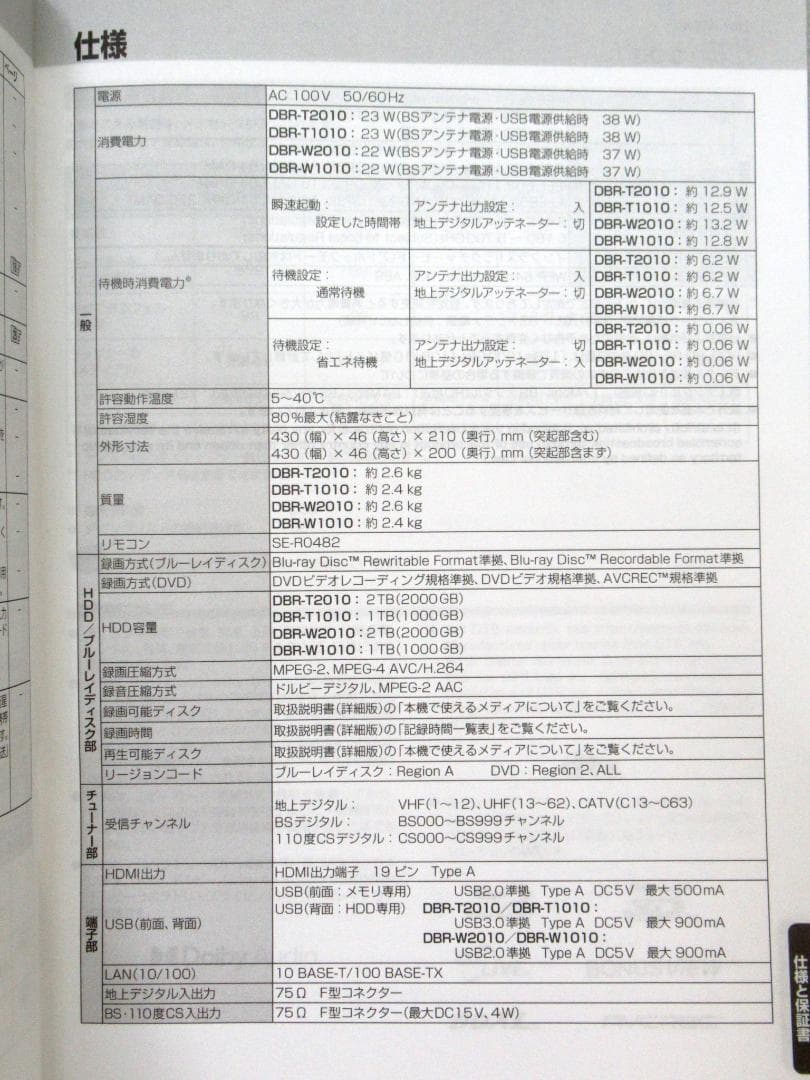 ページ
仕様
一般
電源
AC 100V 50/60Hz
消費電力
DBR-T2010：23 W(BSアンテナ電源・USB電源供給時 38 W)
DBR-T1010：23 W(BSアンテナ電源・USB電源供給時 38 W)
DBR-W2010：22 W(BSアンテナ電源・USB電源供給時 37 W)
DBR-W1010：22 W(BSアンテナ電源・USB電源供給時 37 W)
待機時消費電力※
瞬速起動：
設定した時間帯
アンテナ出力設定： 入
地上デジタルアッテネーター：切
DBR-T2010：約 12.9 W
DBR-T1010：約 12.5 W
DBR-W2010：約 13.2 W
DBR-W1010：約 12.8 W
待機設定：
通常待機
アンテナ出力設定： 入
地上デジタルアッテネーター：切
DBR-T2010：約 6.2 W
DBR-T1010：約 6.2 W
DBR-W2010：約 6.7 W
DBR-W1010：約 6.7 W
待機設定：
省エネ待機
アンテナ出力設定： 切
地上デジタルアッテネーター：入
DBR-T2010：約 0.06 W
DBR-T1010：約 0.06 W
DBR-W2010：約 0.06 W
DBR-W1010：約 0.06 W
許容動作温度
5～40℃
許容湿度
80％最大(結露なきこと)
外形寸法
430（幅）× 46（高さ）× 210（奥行）mm（突起部含む）
430（幅）× 46（高さ）× 200（奥行）mm（突起部含まず）
質量
DBR-T2010：約 2.6 kg
DBR-T1010：約 2.4 kg
DBR-W2010：約 2.6 kg
DBR-W1010：約 2.4 kg
リモコン
SE-R0482
HDD／ブルーレイディスク部
録画方式(ブルーレイディスク)
Blu-ray Disc™ Rewritable Format準拠、Blu-ray Disc™ Recordable Format準拠
録画方式(DVD)
DVDビデオレコーディング規格準拠、DVDビデオ規格準拠、AVCREC™規格準拠
HDD容量
DBR-T2010：2TB(2000GB)
DBR-T1010：1TB(1000GB)
DBR-W2010：2TB(2000GB)
DBR-W1010：1TB(1000GB)
録画圧縮方式
MPEG-2、MPEG-4 AVC/H.264
録音圧縮方式
ドルビーデジタル、MPEG-2 AAC
録画可能ディスク
取扱説明書(詳細版)の「本機で使えるメディアについて」をご覧ください。
録画時間
取扱説明書(詳細版)の「記録時間一覧表」をご覧ください。
再生可能ディスク
取扱説明書(詳細版)の「本機で使えるメディアについて」をご覧ください。
リージョンコード
ブルーレイディスク：Region A DVD：Region 2、ALL
チューナー部
受信チャンネル
地上デジタル： VHF(1～12)、UHF(13～62)、CATV(C13～C63)
BSデジタル： BS000～BS999チャンネル
110度CSデジタル：CS000～CS999チャンネル
端子部
HDMI出力
HDMI出力端子 19 ピン Type A
USB(前面、背面)
USB(前面：メモリ専用) USB2.0準拠 Type A DC5V 最大 500mA
USB(背面：HDD専用) DBR-T2010／DBR-T1010：
USB3.0準拠 Type A DC5V 最大 900mA
DBR-W2010／DBR-W1010：
USB2.0準拠 Type A DC5V 最大 900mA
LAN(10/100)
10 BASE-T/100 BASE-TX
地上デジタル入出力
75Ω F型コネクター
BS・110度CS入出力
75Ω F型コネクター(最大DC15V、4W)
仕様と保証書